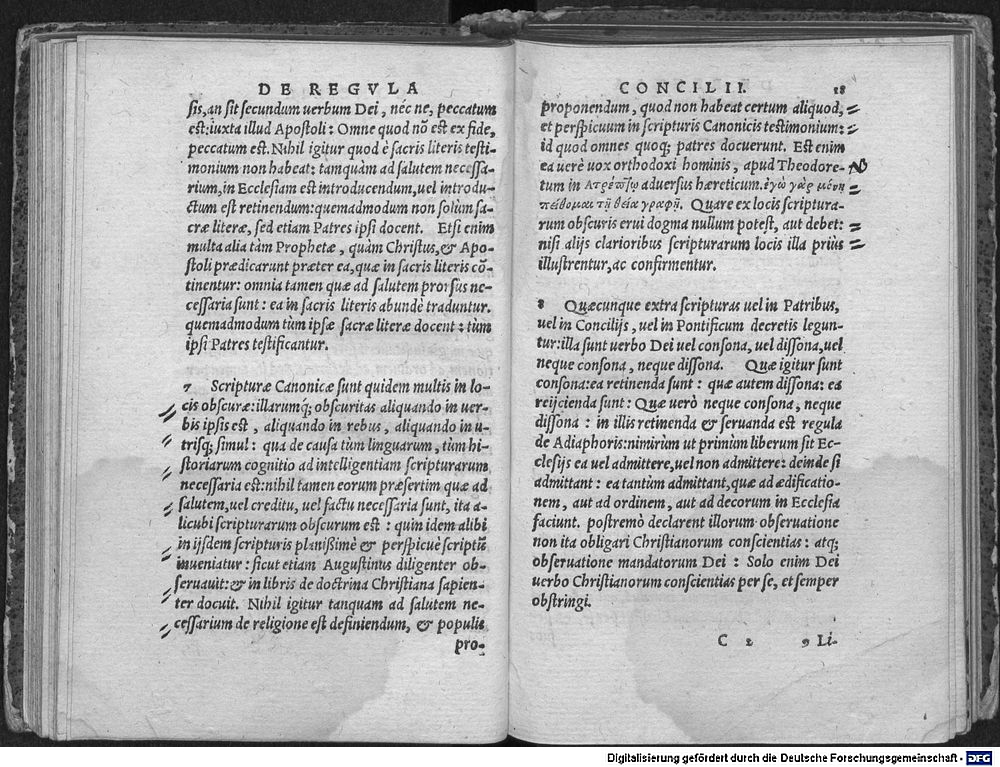 DE REGVLA
sis, an sit secundum uerbum Dei, néc ne, peccatum
est: iuxta illud Apostoli: Omne quod nō est ex fide,
peccatum est. Nihil igitur quod è sacris literis testi-
monium non habeat: tamquàm ad salutem necessa-
rium, in Ecclesiam est introducendum, uel introdu-
ctum est retinendum: quemadmodum non solùm sa-
cræ literæ, sed etiam Patres ipsi docent. Etsi enim
multa alia tàm Prophetæ, quàm Christus, & Apo-
stoli prædicarunt præter ea, quæ in sacris literis cō-
tinentur: omnia tamen quæ ad salutem prorsus ne-
cessaria sunt: ea in sacris literis abundè traduntur.
quemadmodum tùm ipsæ sacræ literæ docent: tùm
ipsi Patres testificantur.
7 Scripturæ Canonicæ sunt quidem multis in lo-
cis obscuræ: illarumq; obscuritas aliquando in uer-
bis ipsis est, aliquando in rebus, aliquando in u-
trisq; simul: qua de causa tùm linguarum, tùm hi-
storiarum cognitio ad intelligentiam scripturarum
necessaria est: nihil tamen eorum præsertim quæ ad
salutem, uel creditu, uel factu necessaria sunt, ita a-
licubi scripturarum obscurum est: quin idem alibi
in ijsdem scripturis planißimè & perspicuè scriptū
inueniatur: sicut etiam Augustinus diligenter ob-
seruauit: & in libris de doctrina Christiana sapien-
ter docuit. Nihil igitur tanquam ad salutem ne-
cessarium de religione est definiendum, & populis
pro-
CONCILII. 18
proponendum, quod non habeat certum aliquod,
et perspicuum in scripturis Canonicis testimonium:
id quod omnes quoq; patres docuerunt. Est enim
ea uerè uox orthodoxi hominis, apud Theodore-
tum in Ατρέπτῳ aduersus hæreticum. ἐγὼ γὰρ μόνῃ
πείθομαι τῇ θείᾳ γραφῇ. Quare ex locis scriptura-
rum obscuris erui dogma nullum potest, aut debet:
nisi alijs clarioribus scripturarum locis illa priùs
illustrentur, ac confirmentur.
8 Quæcunque extra scripturas uel in Patribus,
uel in Concilijs, uel in Pontificum decretis legun-
tur: illa sunt uerbo Dei uel consona, uel dissona, uel
neque consona, neque dissona. Quæ igitur sunt
consona: ea retinenda sunt: quæ autem dissona: ea
reijcienda sunt: Quæ uerò neque consona, neque
dissona: in illis retinenda & seruanda est regula
de Adiaphoris: nimirùm ut primùm liberum sit Ec-
clesijs ea uel admittere, uel non admittere: deinde si
admittant: ea tantùm admittant, quæ ad ædificatio-
nem, aut ad ordinem, aut ad decorum in Ecclesia
faciunt. postremò declarent illorum obseruatione
non ita obligari Christianorum conscientias: atq;
obseruatione mandatorum Dei: Solo enim Dei
uerbo Christianorum conscientias per se, et semper
obstringi.
C 2 9 Li-
Digitalisierung gefördert durch die Deutsche Forschungsgemeinschaft - DFG